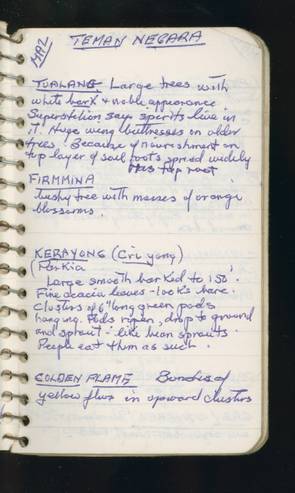 MAR
TEMAN NEGARA
TUALANG Large trees with
white bark & noble appearance
Superstition says spirits live in
it. Huge wing buttresses on older
trees. Because of nourishment on
top layer of soil roots spread widely
tap root
FIRMMINA
bushy tree with masses of orange
blossoms.
KERAYONG (Cri yong)
Parkia
Large smooth barked to 150'.
Fine acacia leaves - looks bare.
Clusters of 6" long green pods
hanging. Pods ripen, drop to ground
and sprout - like bean sprouts.
People eat them as such.
GOLDEN FLAME Bunches of
yellow flwrs in upward clusters